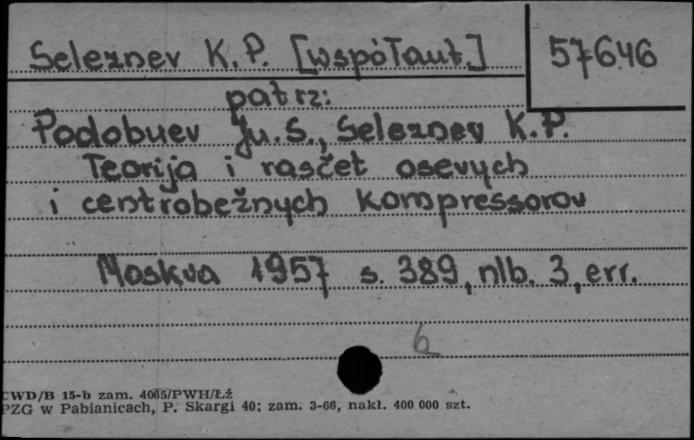 Seleznev K.P. [współaut.]
57646
patrz:
Podobuev Ju.S., Seleznev K.P.
Teorija i rasčet osevych
i centrobežnych kompressorov
Moskva 1957 s. 389, nlb. 3, err.
6
CWD/B 15-b zam. 4065/PWH/Łź
PZG w Pabianicach, P. Skargi 40; zam. 3-66, nakł. 400 000 szt.